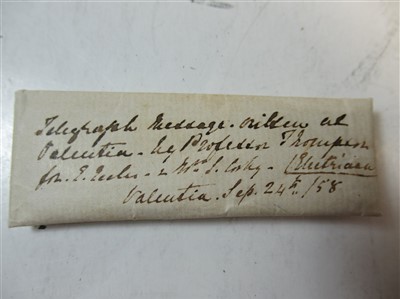 Telegraph Message. written at
Valentia. By Professor Thompson
for. E. & Wm S. - Electrician
Valentia. Sep. 24th /58